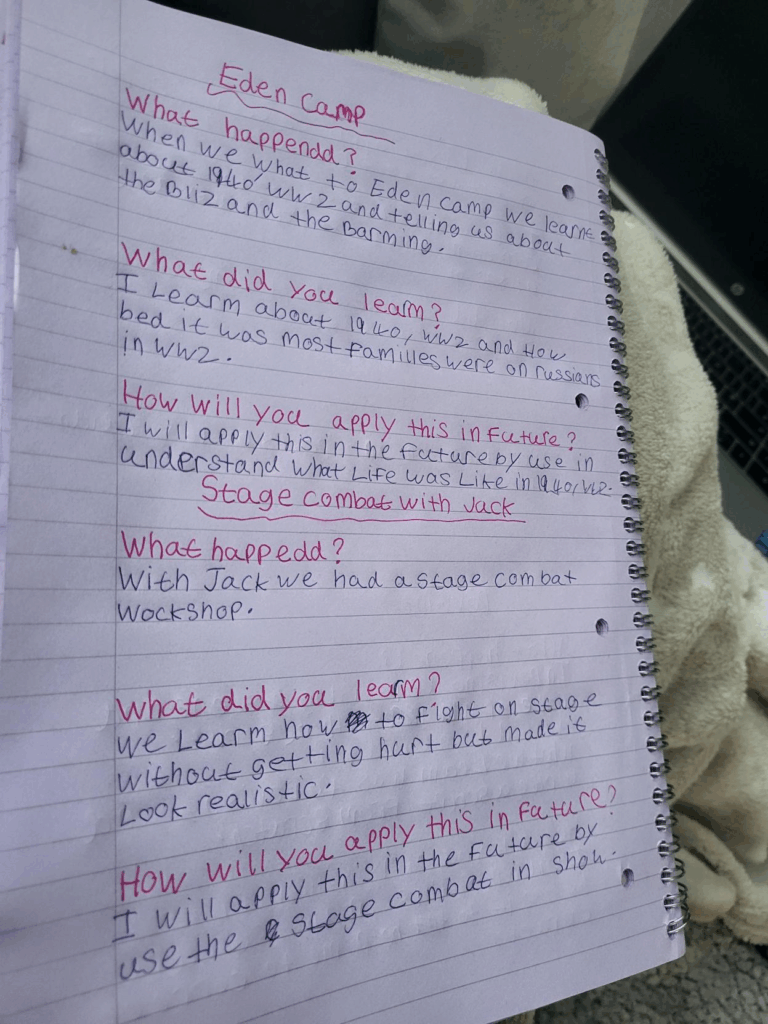 Eden Camp
What happendd?
When we what to Eden camp we learnt
about 1940 WW2 and telling us about
the Bliz and the Barming.
What did you learn?
I Learn about 1940, WW2 and How
bed it was most familles were on russians
in WW2.
How will you apply this in future?
I will apply this in the future by use in
understand what Life was Like in 1940, WW2.
Stage combat with Jack
What happedd?
With Jack we had a stage combat
wockshop.
What did you learn?
We Learn how to fight on stage
without getting hurt but made it
Look realistic.
How will you apply this in future?
I will apply this in the future by
use the stage combat in show.